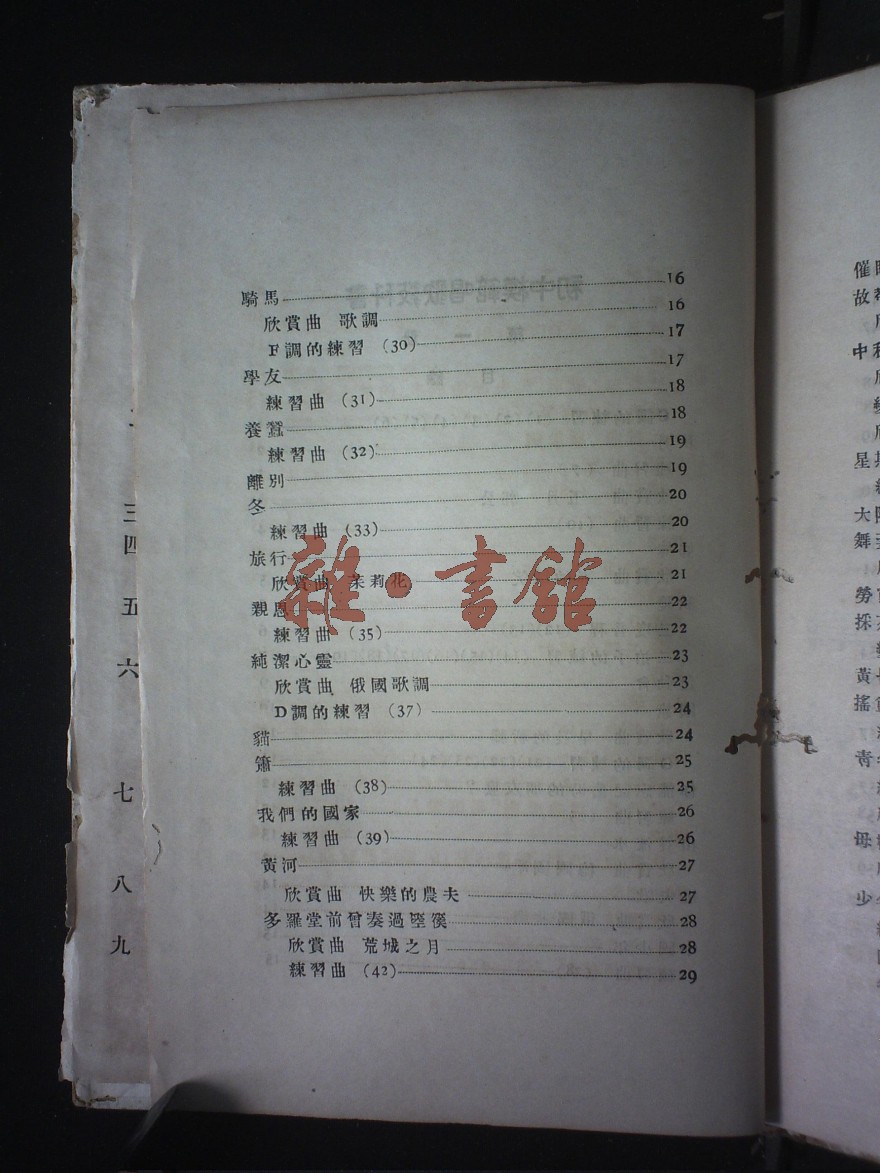 騎馬 16
欣賞曲 歌調 16
F調的練習 (30) 17
學友 17
練習曲 (31) 18
養蠶 18
練習曲 (32) 19
離別 19
冬 20
練習曲 (33) 20
旅行 21
欣賞曲 茉莉花 21
親恩 22
練習曲 (35) 22
純潔心靈 23
欣賞曲 俄國歌調 23
D調的練習 (37) 24
貓 24
簫 25
練習曲 (38) 25
我們的國家 26
練習曲 (39) 26
黃河 27
欣賞曲 快樂的農夫 27
多羅堂前曾奏過壂篌 28
欣賞曲 荒城之月 28
練習曲 (42) 29
雜·書館
三
四
五
六
七
八
九
故
中
星
大
舞
勞
採
黃
搖
青
母
少